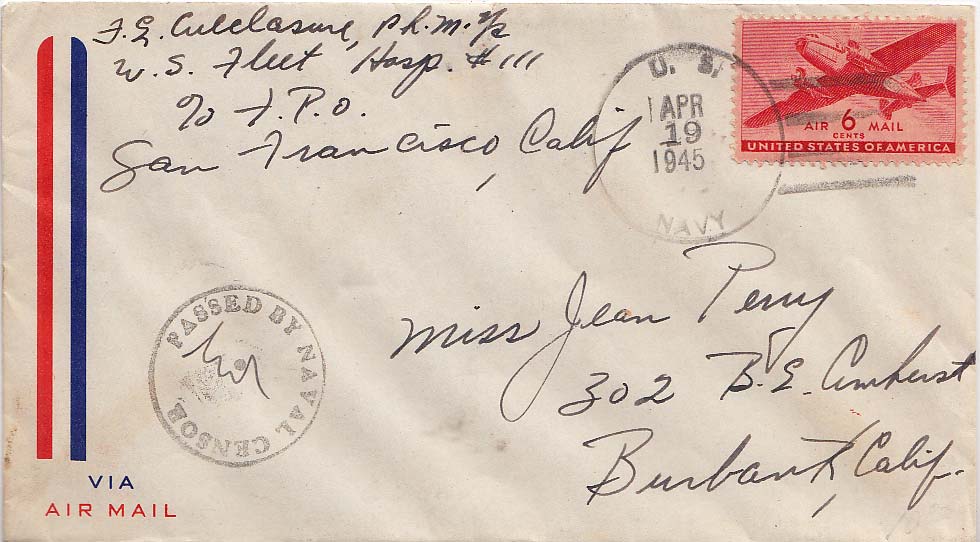 F. E. Culclasure, Ph. M. 1/c
U. S. Fleet Hosp. # 111
c/o F. P. O.
San Francisco, Calif
U. S.
APR
19
1945
NAVY
AIR 6 MAIL
CENTS
UNITED STATES OF AMERICA
PASSED BY NAVAL CENSOR
Miss Jean Perry
302 B. E. Amherst
Burbank, Calif.
VIA
AIR MAIL